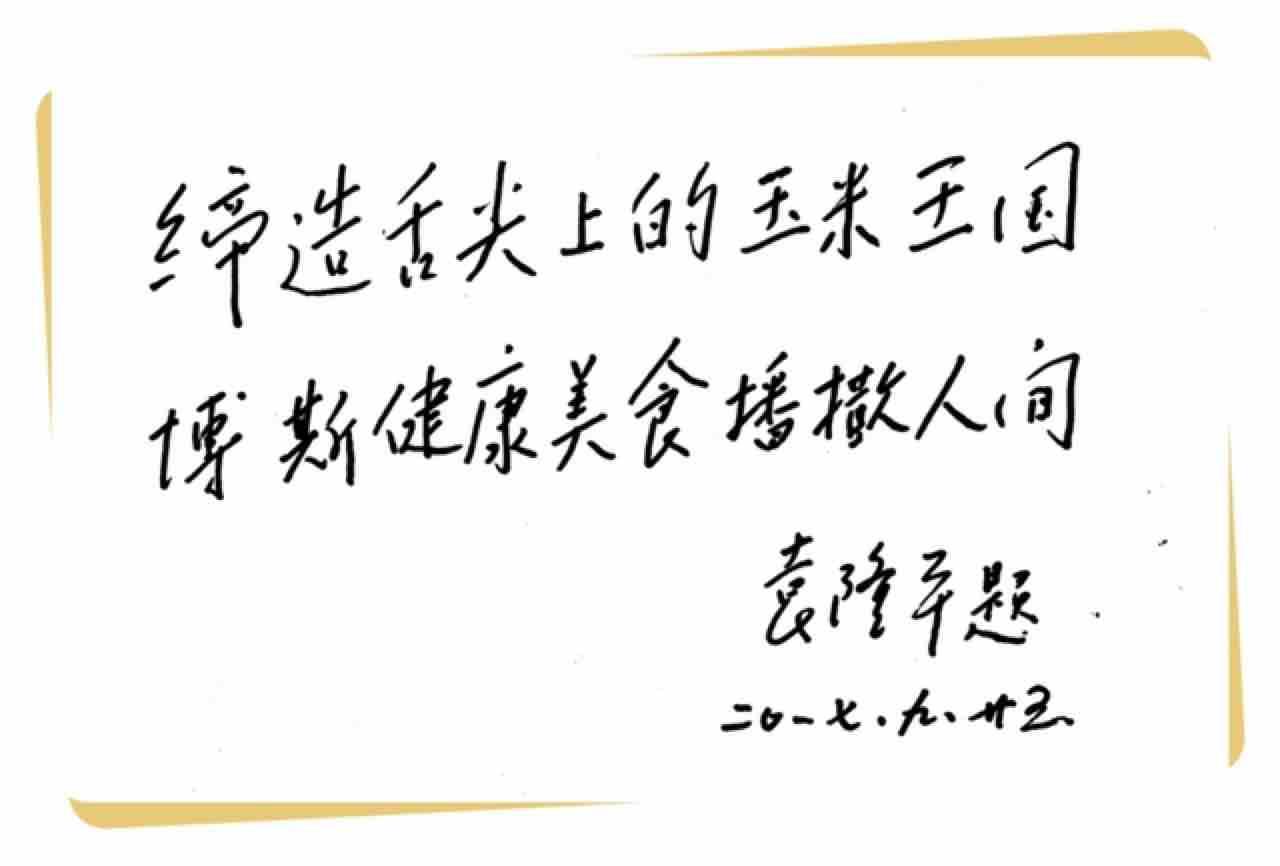 缔造舌尖上的玉米王国
博斯健康美食播撒人间
袁隆平题
二〇一七.九.廿五.